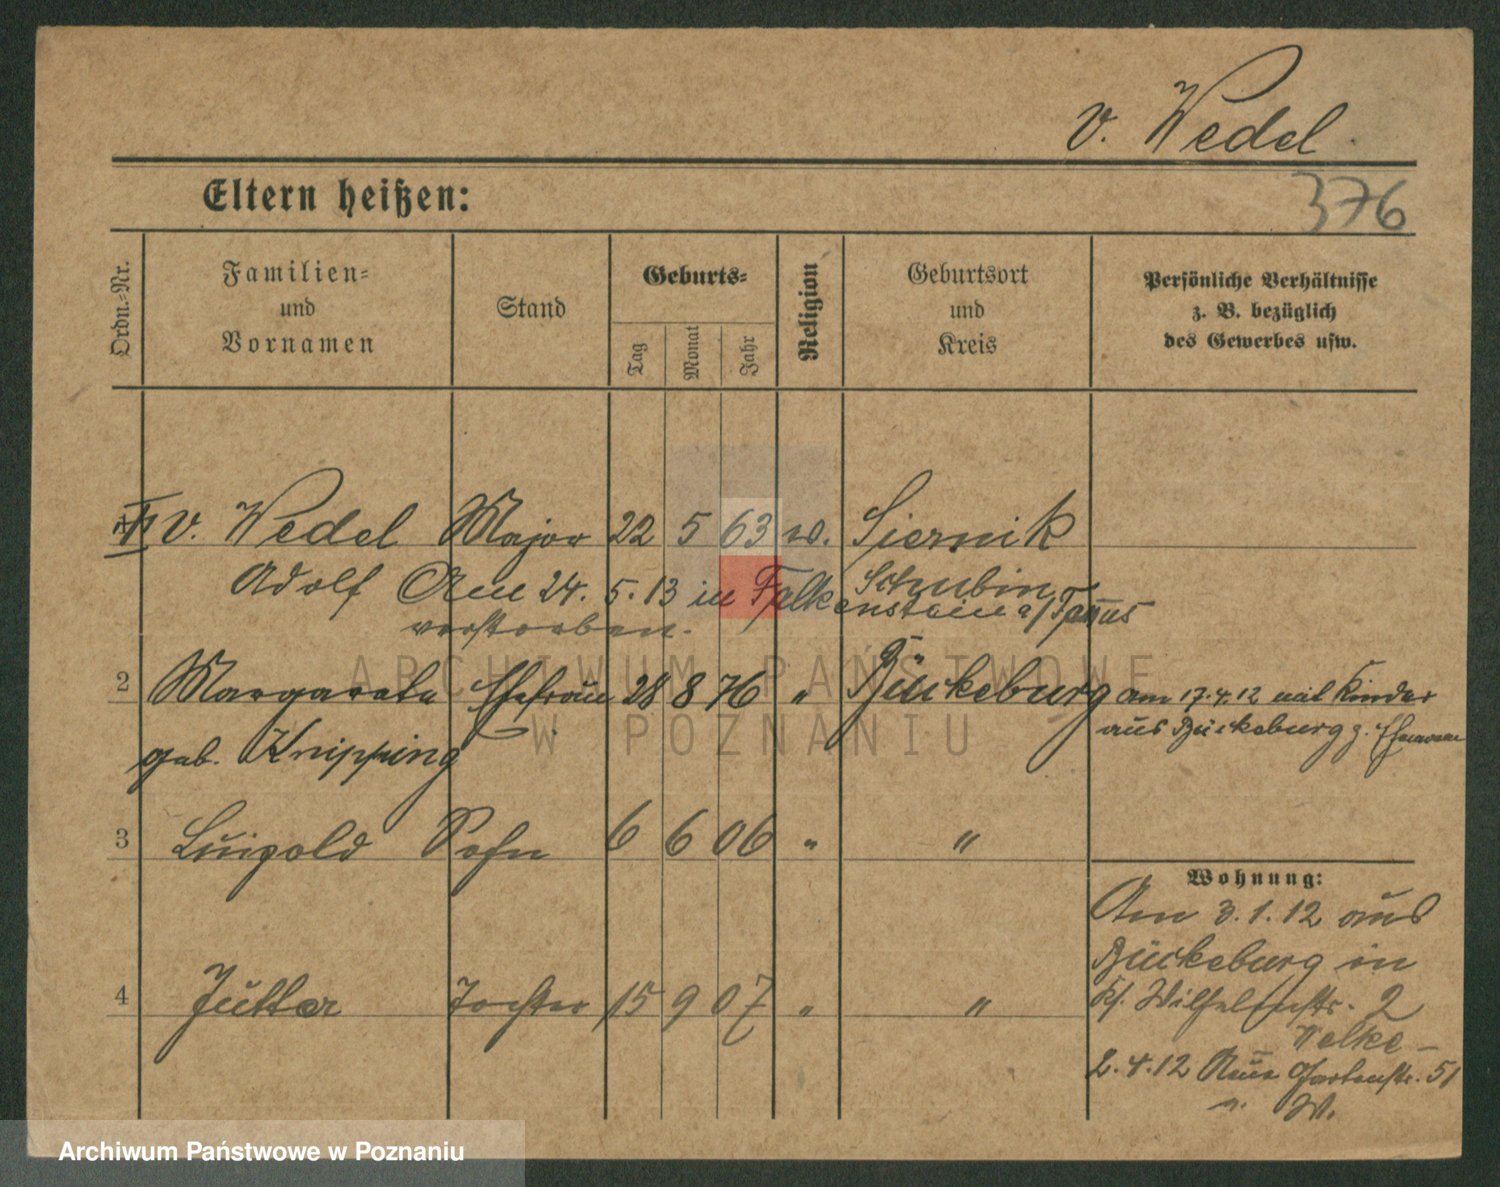 v. Wedel.
Eltern heißen:
376
Ordn.-Nr.
Familien- und Vornamen
Stand
Geburts-
Tag
Monat
Jahr
Religion
Geburtsort und Kreis
Persönliche Verhältnisse z. B. bezüglich des Gewerbes usw.
v. Wedel Major 22 5 63 Siernik
Adolf Schubin
Am 24. 5. 13 in Falkenstein a/Taunus
verstorben.
2 Margarete Ehefrau 28 8 76 " Bückeburg am 17.4.12 mit Kinder
geb. Knipping aus Bückeburg z. Ehemann
3 Luipold Sohn 6 6 06 " "
Wohnung:
Am 3.1.12 aus
Bückeburg in
4 Jutta Tochter 15 9 07 " "
Wilhelmstr. 2
2.4.12 Neue Gartenstr. 51
W.
ARCHIWUM PAŃSTWOWE
W POZNANIU
Archiwum Państwowe w Poznaniu